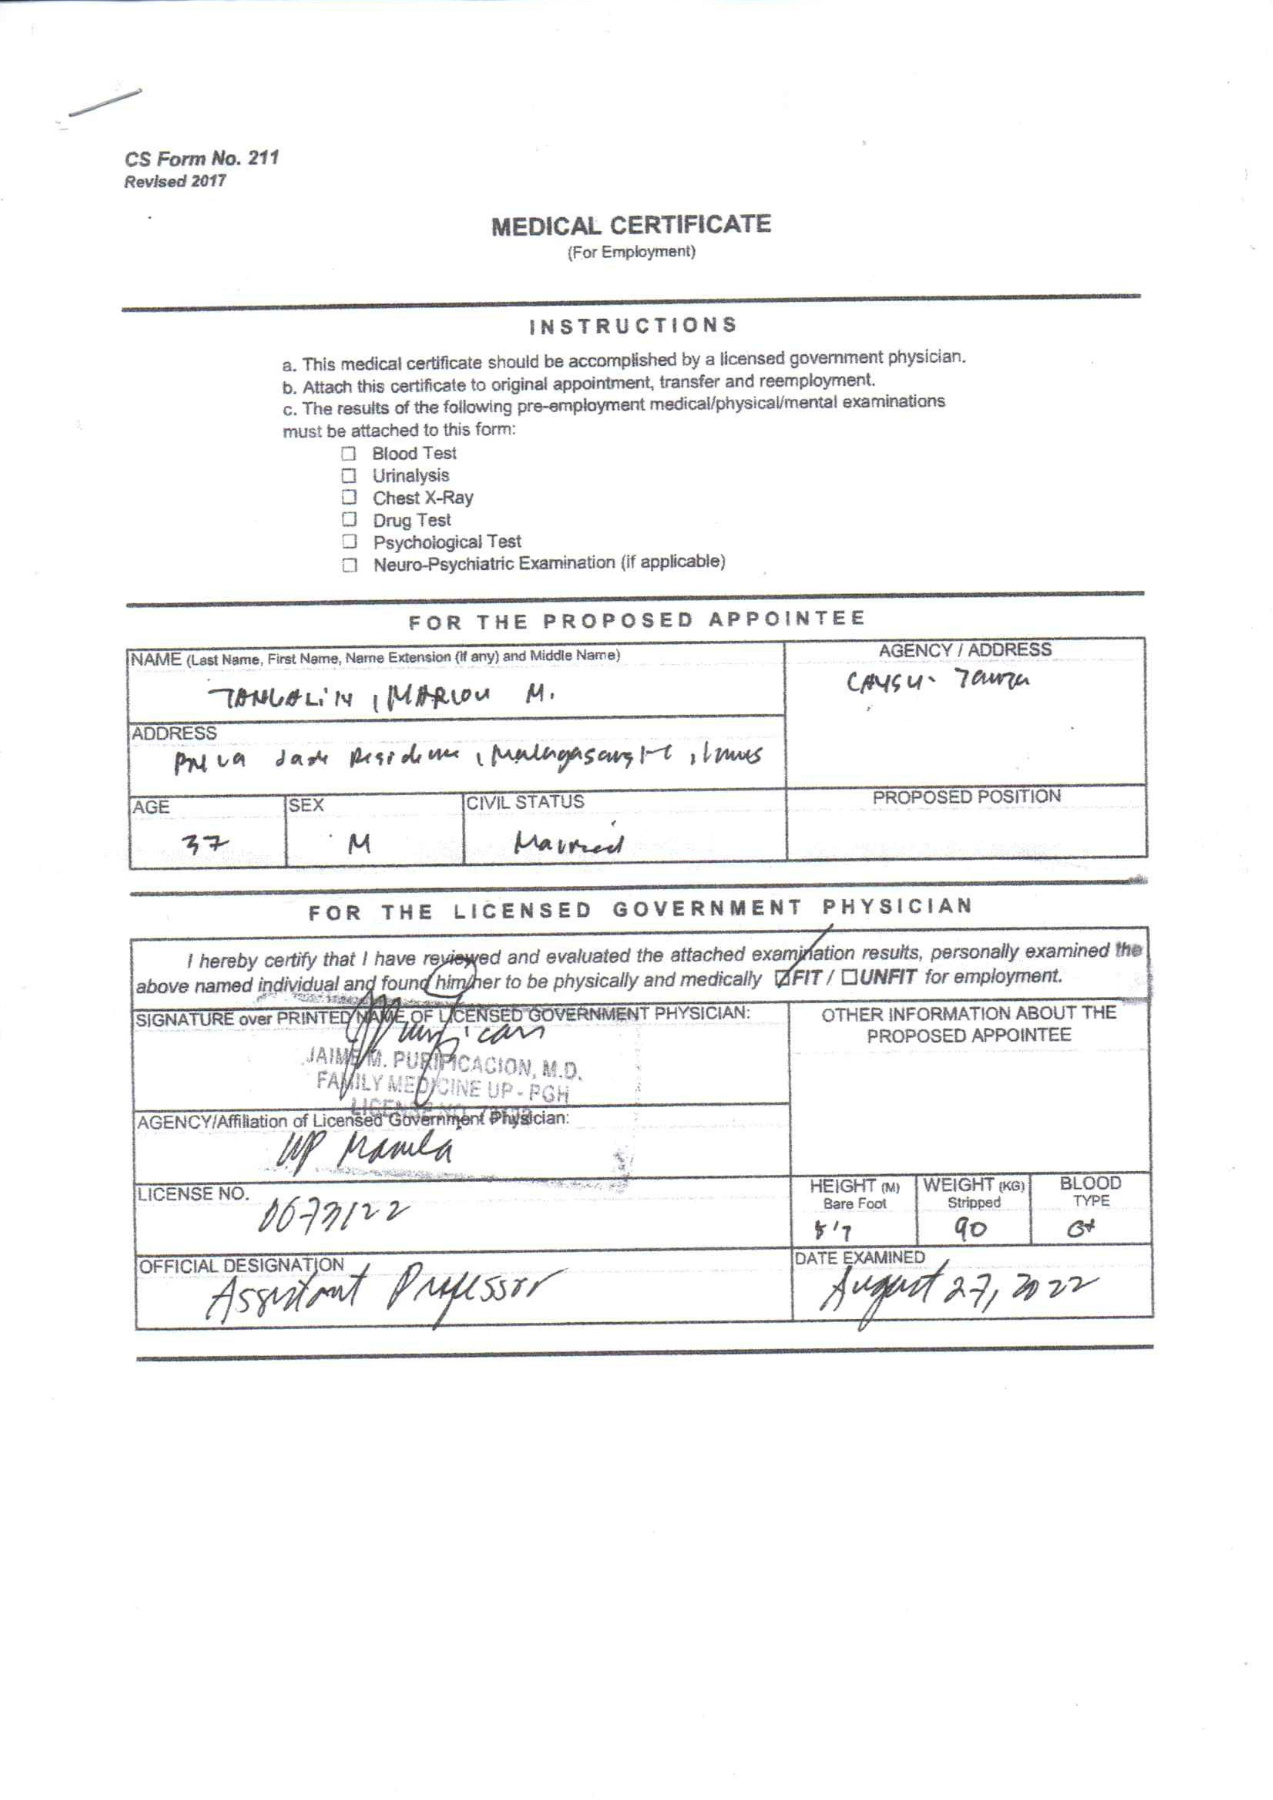 CS Form No. 211
Revised 2017
MEDICAL CERTIFICATE
(For Employment)
INSTRUCTIONS
a. This medical certificate should be accomplished by a licensed government physician.
b. Attach this certificate to original appointment, transfer and reemployment.
c. The results of the following pre-employment medical/physical/mental examinations
must be attached to this form:
☐ Blood Test
☐ Urinalysis
☐ Chest X-Ray
☐ Drug Test
☐ Psychological Test
☐ Neuro-Psychiatric Examination (if applicable)
FOR THE PROPOSED APPOINTEE
NAME (Last Name, First Name, Name Extension (if any) and Middle Name)
AGENCY / ADDRESS
M.
Tanza
ADDRESS
Jade Residence, Malagasang, Imus
AGE
SEX
CIVIL STATUS
PROPOSED POSITION
37
M
Married
FOR THE LICENSED GOVERNMENT PHYSICIAN
I hereby certify that I have reviewed and evaluated the attached examination results, personally examined the
above named individual and found him/her to be physically and medically ☑FIT / ☐UNFIT for employment.
SIGNATURE over PRINTED NAME OF LICENSED GOVERNMENT PHYSICIAN:
OTHER INFORMATION ABOUT THE
PROPOSED APPOINTEE
JAIME M. PURIFICACION, M.D.
FAMILY MEDICINE UP - PGH
LICENSE NO.
AGENCY/Affiliation of Licensed Government Physician:
UP Manila
LICENSE NO.
HEIGHT (M)
Bare Foot
WEIGHT (KG)
Stripped
BLOOD
TYPE
5'7
90
O+
OFFICIAL DESIGNATION
Assistant Professor
DATE EXAMINED
August 27, 2022